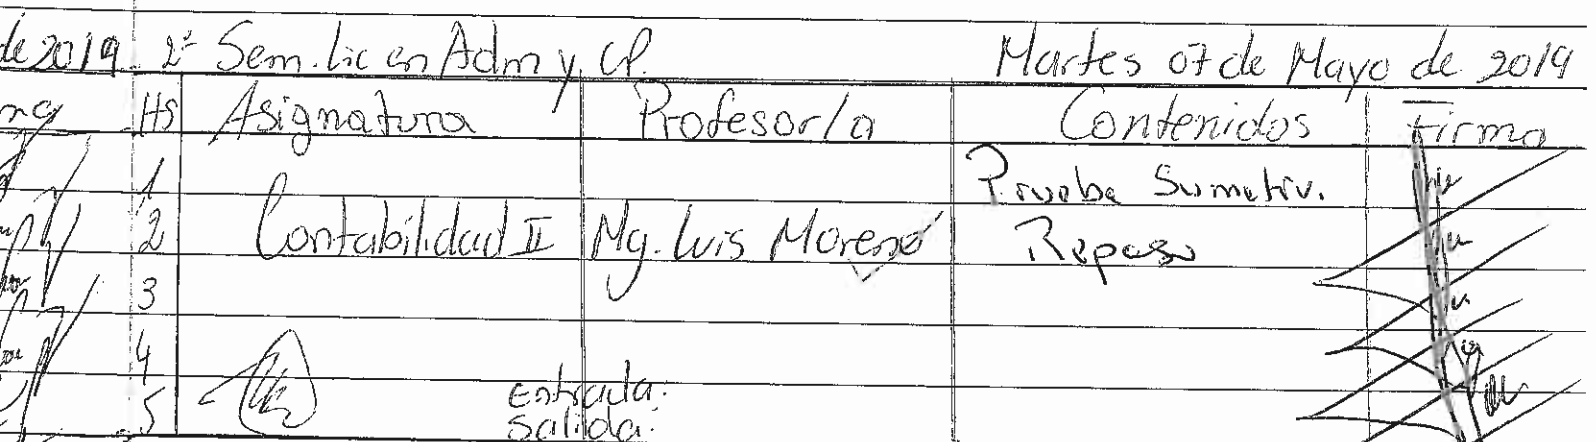 de 2019 2º Sem. Lic en Adm y CP. Martes 07 de Mayo de 2019
HS Asignatura Profesor/a Contenidos Firma
1 Prueba Sumativ.
2 Contabilidad II Mg. Luis Moreno Repaso
3
4
entrada:
5
salida: